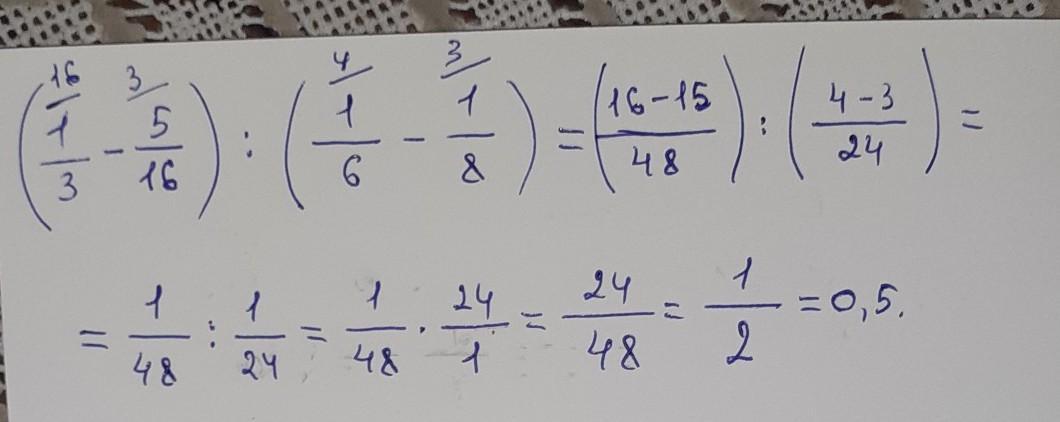 (16/ 1/3 - 3/ 5/16) : (4/ 1/6 - 3/ 1/8) = (16-15/48) : (4-3/24) =
= 1/48 : 1/24 = 1/48 · 24/1 = 24/48 = 1/2 = 0,5.